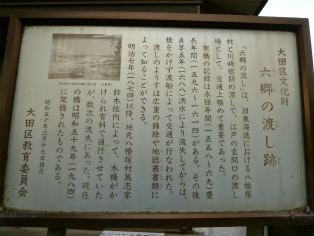 大田区文化財
六郷の渡し跡
「六郷の渡し」は、旧東海道における八幡塚
村と川崎宿間の渡しで、江戸の玄関口の渡し
場として、交通上極めて重要であった。
架橋の記録は永禄年間(一五五八〜六九)慶
長年間(一五九六〜一六一四)がある。その後
貞享五年(一六八八)洪水により流失してからは、
橋をかけず渡船によって交通が行なわれた。
渡しのようすは広重の錦絵や地誌叢書類に
よって知ることができる。
明治七年(一八七四)以降、地元八幡塚村篤志家
鈴木佐内によって、木橋がか
けられ有料で通行させていた
が、数次の流失にあった。現在
の橋は昭和五十九年(一九八四)
に架橋されたものである。
大田区教育委員会